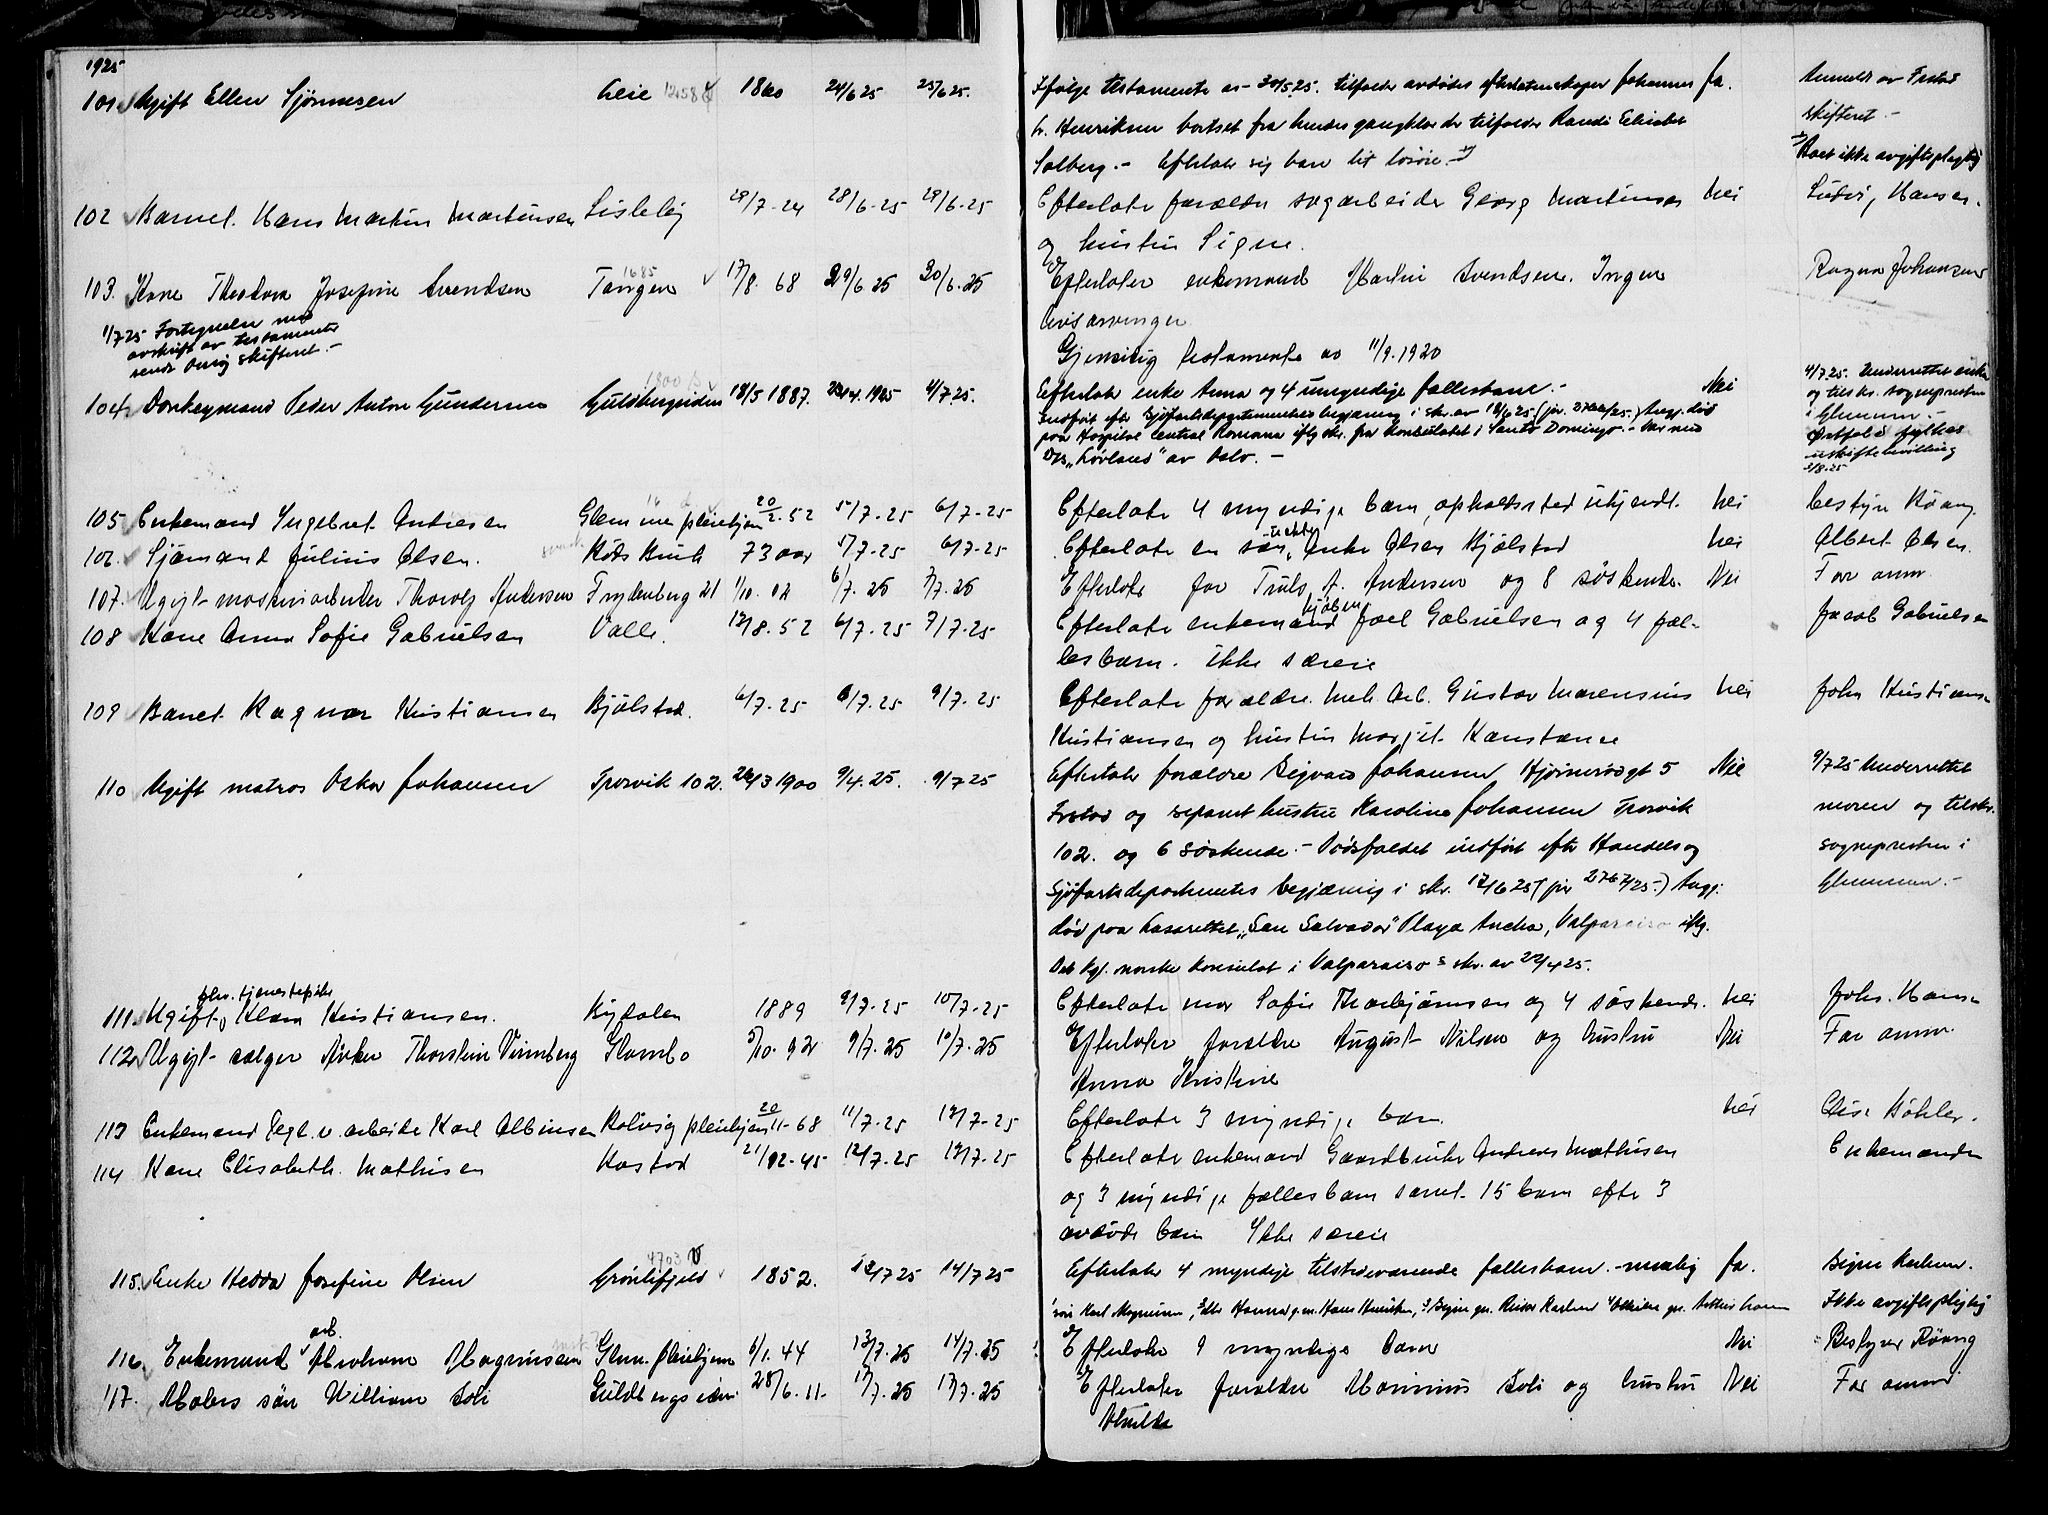 1925
101 Ugift Ellen Sjönnesen Leie 1860 24/6 25 25/6 25. Ifølge testamente av 30/5.25. tilfalder avdødes efterlatenskaper Johannes Ja. Anmeldt av Frstad
L. Henriksen bortset fra hendes gangklær der tilfalder Randi Elisabet skifteret.-
Solberg.- Efterlot sig bare lit løsøre.- Boet ikke avgiftspligtig
102 Barnet Hans Martin Martinsen Lisleby 29/7-24 28/6-25 29/6-25 Efterlater forældre sagarbeider Georg Martinsen Nei Ludvig Hansen.
og hustru Signe.
103. Kone Theodora Josefine Svendsen Tangen 1685 17/8. 68 29/6 25 30/6.25 Efterlater enkemand Martin Svendsen. Ingen Ragna Johansen
livsarvinger
1/7 25 Fortegnelse med
avskrift av testamente
sendt Onsøy skifteret.-
Gjensidig testamente av 11/9.1920
104. Donkeymand Peder Anton Gundersen Guldbergsiden 18/5 1887. 23/4.1925 4/7 25. Efterlater enke Anna og 4 umyndige fællesbarn.- Nei 4/7 25. Underrettet enken
Indført efter Sjøfartsdepartementets begjæring i skr. av 18/6 25. Angj. død og tilskr. sognepresten
paa Hospital Central Romana iflg skr. fra konsulatet i Santo Domingo.- Var med i Glemmen.-
D/S "Løvland" av Oslo.- Østfold fylkes
uskiftebevilling
5/8.25
105 Enkemand Ingebret Andresen Glemmen pleiehjem 20/2.52 5/7-25 6/7-25 Efterlater 4 myndige barn, opholdssted ukjendt. Nei Bestyr. Røang.
106. Sjømand Julius Olsen. Røds Bruk 73 aar 5/7-25 6/7-25 Efterlater en søn, Olsen Kjølstad Nei Albert Olsen.
107. Ugift maskinarbeider Thorolf Andersen Frydenberg 21 1/10. 02 6/7. 25 7/7. 25 Efterlater far Truls A. Andersen og 8 søskende. Nei Far anm.
108 Kone Anna Sofie Gabrielsen Valle. 12/8.52 6/7-25 7/7-25 Efterlater enkemand Joel Gabrielsen og 4 fæl- Jacob Gabrielsen
lesbarn. Ikke særeie
109 Barnet Ragnar Kristiansen Bjølstad. 6/7-25 8/7-25 9/7-25 Efterlater forældre. Mek. Arb. Gustav Marensius Nei John Kristiansen
Kristiansen og hustru Margit Konstanse
110 Ugift matros Oskar Johansen Trosvik 102. 26/3 1900 9/4.25. 9/7 25 Efterlater forældre Sigvard Johansen Hjørnevogt 5 Nei 9/7 25 Underrettet
Frstad og separert hustru Karoline Johansen Trosvik moren og tilskr.
102. og 6 søskende.- Dødsfaldet indført efter Handels og sognepresten i
Sjøfartsdepartementets begjæring i skr. 17/6 25 (jnr 2767/25.) Angj: Glemmen.-
død paa Lasarettet "San Salvador" Playa Ancha, Valparaiso iflg.
Det Kgl. norske konsulat i Valparaiso s skr. av 22/4 25.
fhv. tjenestepike
111. Ugift Klara Kristiansen. Rydalen 1889 9/7-25 10/7-25 Efterlater mor Sofie Thorbjørnsen og 4 søskende. Nei Johs. Hansen
112. Ugift sælger Arthur Thorstein Vinnberg Slambo 5/10. 92 9/7. 25 10/7. 25 Efterlater forældre August Nilsen og hustru Nei Far anm.
Anna Kristine
113 Enkemand Tegl.v. arbeider Karl Albinsen Rolvsøy pleiehjem 20/11-68 11/7-25 12/7-25 Efterlater 3 myndige barn. Nei Elise Böhler.
114 Kone Elisabeth. Mathisen Hastad 21/12-45 12/7-25 12/7-25 Efterlater enkemand Gaardbruker Andreas Mathisen Enkemanden
og 3 myndige fællesbarn samt 15 barn efter 3
avdøde barn Ikke særeie
115. Enke Hedda Josefine Olsen Grønlifjeld 4703 1852. 12/7 25 14/7 25 Efterlater 4 myndige tilstedeværende fællesbarn.- nemlig Ja. Signe Karlsen.
Karl Magnussen, Hanna g.m. Hans Henriksen, Signe gm. Karlsen Ikke avgiftspligtig
arb.
116. Enkemand Abraham Magnussen Glem. Pleiehjem 6/1. 44 13/7.25 14/7.25 Efterlater 9 myndige barn Nei Bestyrer Røang
117. Malers søn William Soli Guldbergsiden 28/6.11 17/7.25 17/7.25 Efterlater forældre Marinius Soli og hustru Nei Far anm.
Alvilda